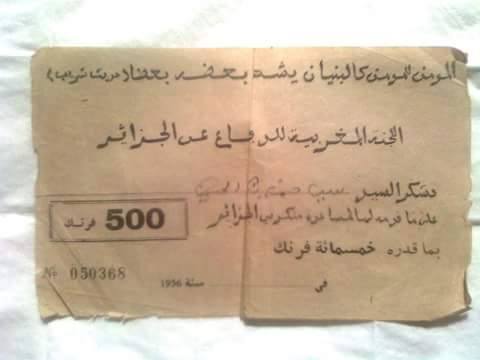 المؤمن للمؤمن كالبنيان يشد بعضه بعضا (حديث شريف)
اللجنة المغربية للدفاع عن الجزائر
تشكر السيد
على ما قدمه لها لمساعدة منكوبي الجزائر
بما قدره خمسمائة فرنك
500 فرنك
في سنة 1956
№ 050368